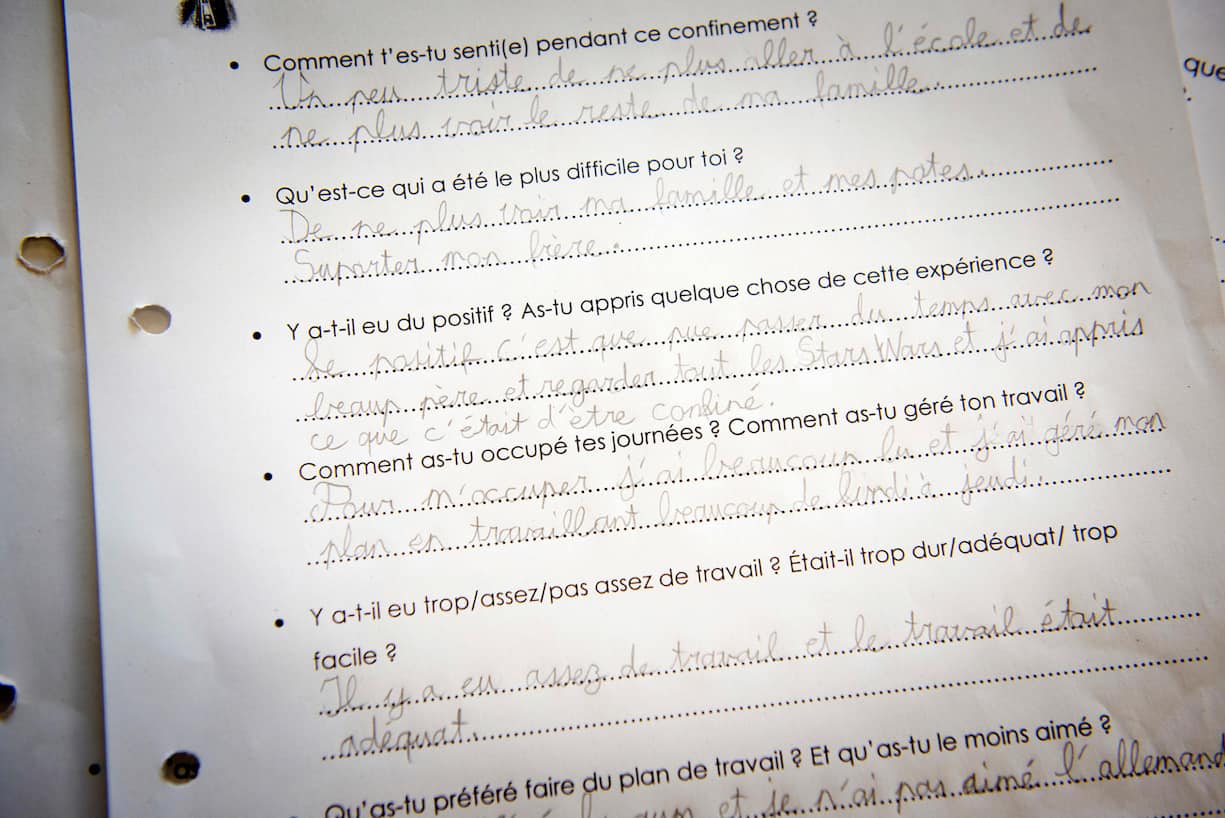 • Comment t'es-tu senti(e) pendant ce confinement ?
Un peu triste de ne plus aller à l'école et de
ne plus voir le reste de ma famille.
• Qu'est-ce qui a été le plus difficile pour toi ?
De ne plus voir ma famille et mes potes.
Suporter mon frère.
• Y a-t-il eu du positif ? As-tu appris quelque chose de cette expérience ?
Le positif c'est que pue passer du temps avec mon
beaup père et regarder tout les Stars Wars et j'ai appris
ce que c'était d'être confiné.
• Comment as-tu occupé tes journées ? Comment as-tu géré ton travail ?
Pour m'occuper j'ai beaucoup lu et j'ai géré mon
plan en travaillant beaucoup de lundi à jeudi.
• Y a-t-il eu trop/assez/pas assez de travail ? Était-il trop dur/adéquat/ trop
facile ?
Il y a eu assez de travail et le travail était
adéquat.
Qu'as-tu préféré faire du plan de travail ? Et qu'as-tu le moins aimé ?
et je n'ai pas aimé l'allemand
que